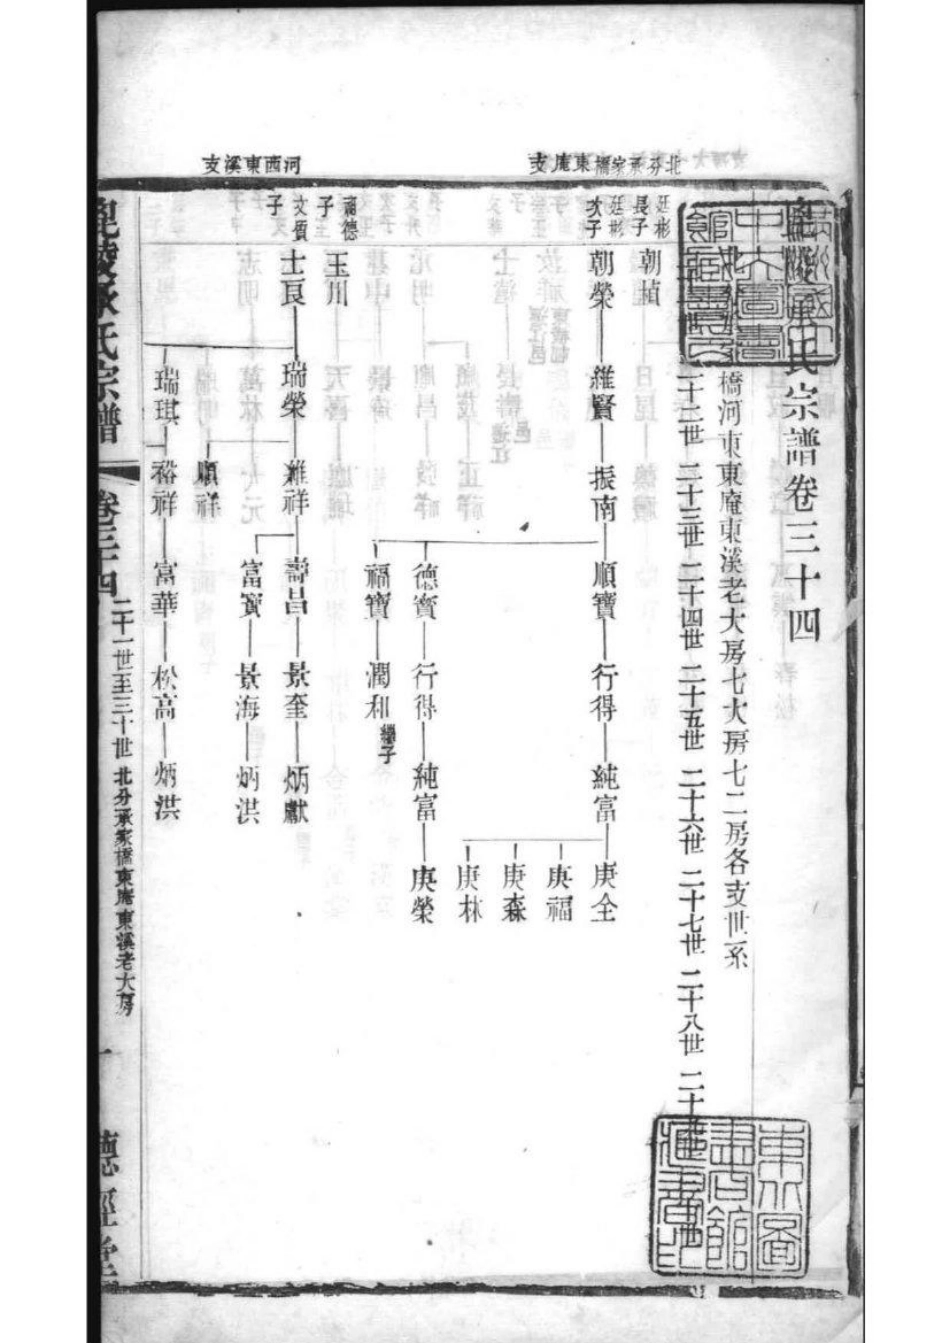 北分承家橋東庵支
河西東溪支
毘陵承氏宗譜卷三十四
橋河東東庵東溪老大房七大房七二房各支世系
二十二世 二十三世 二十四世 二十五世 二十六世 二十七世 二十八世 二十九世
廷彬長子 朝楨
廷彬次子 朝榮 維賢 振南 順寶 行得 純富 庚全
庚福
庚森
庚林
德寶 行得 純富 庚榮
福寶 潤和 繼子
德子 玉川
文質子 士良 瑞榮 維祥 壽昌 景奎 炳獻
富寶 景海 炳洪
順祥
瑞琪 裕祥 富華 松高 炳洪
毘陵承氏宗譜 卷三十四 二十一世至三十世 北分承家橋東庵東溪老大房 一 德經堂
東圖書館藏書印